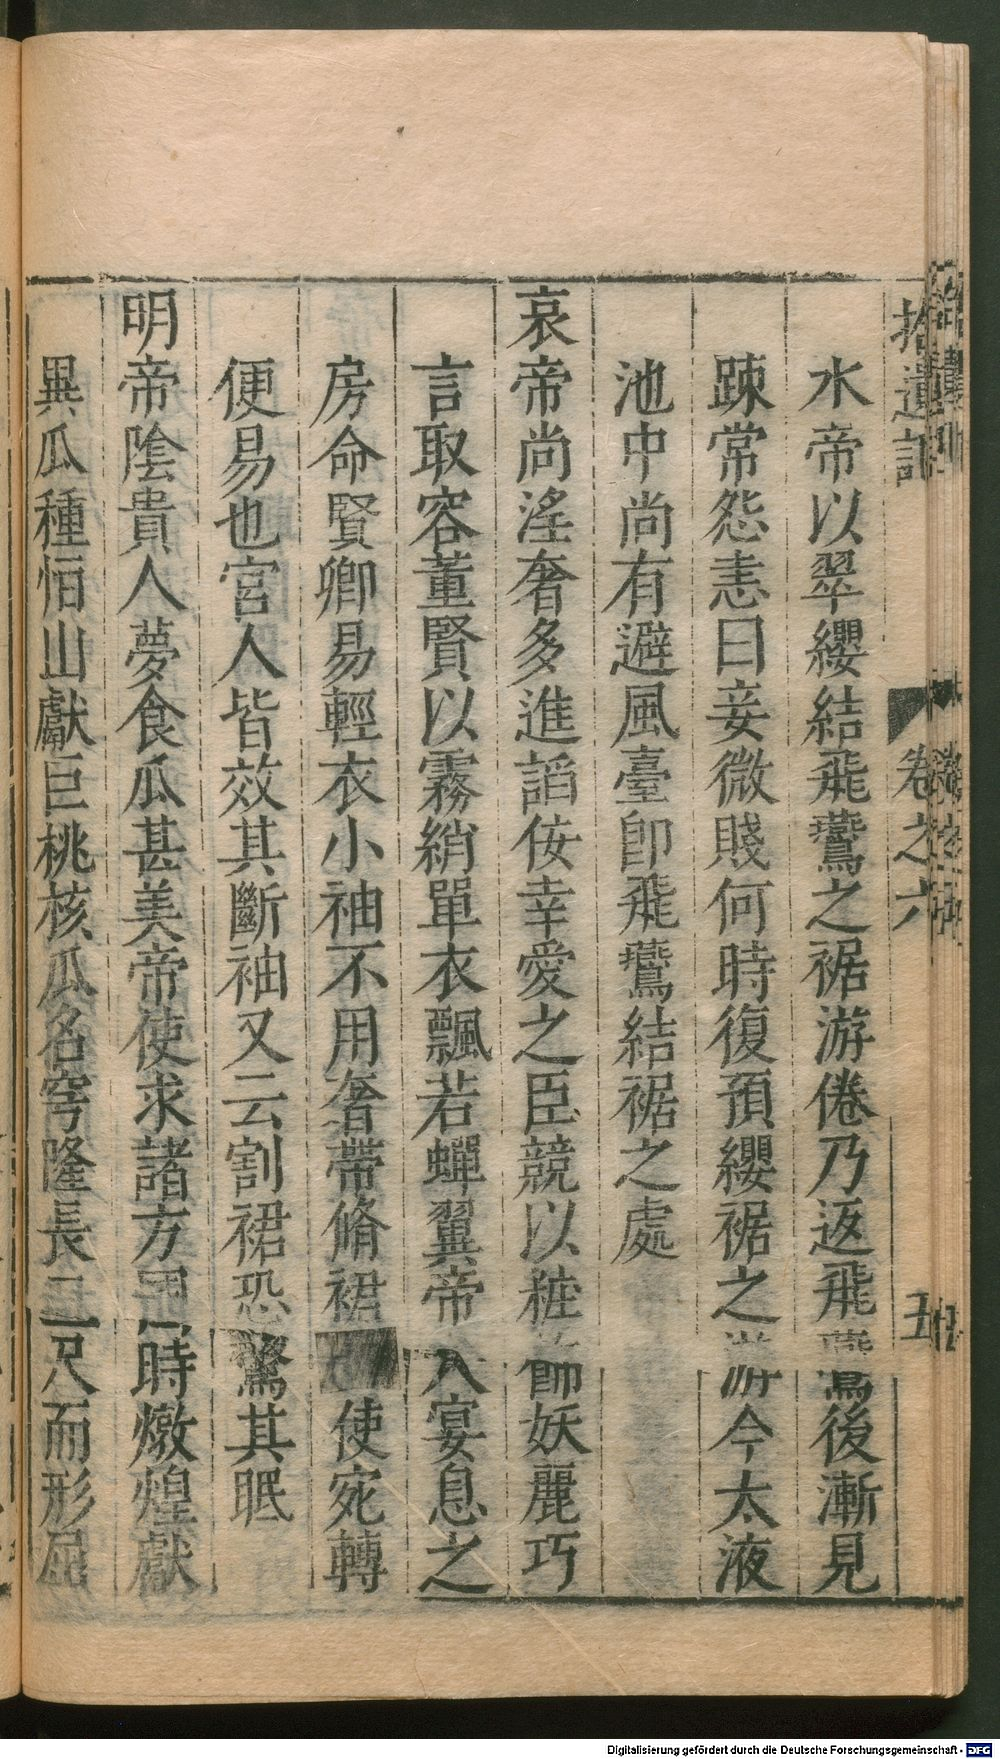 拾遺記 卷之六 五
水帝以翠纓結飛鷰之裾游倦乃返飛鷰後漸見
踈常怨恚曰妾微賤何時復預纓裾之游今太液
池中尚有避風臺卽飛鷰結裾之處
哀帝尚淫奢多進謟佞幸愛之臣競以粧飾妖麗巧
言取容董賢以霧綃單衣飄若蟬翼帝入宴息之
房命賢卿易輕衣小袖不用奢帶脩裙使宛轉
便易也宮人皆效其斷袖又云割裙恐驚其眠
明帝陰貴人夢食瓜甚美帝使求諸方國時燉煌獻
異瓜種恒山獻巨桃核瓜名穹隆長三尺而形屈
Digitalisierung gefördert durch die Deutsche Forschungsgemeinschaft - DFG